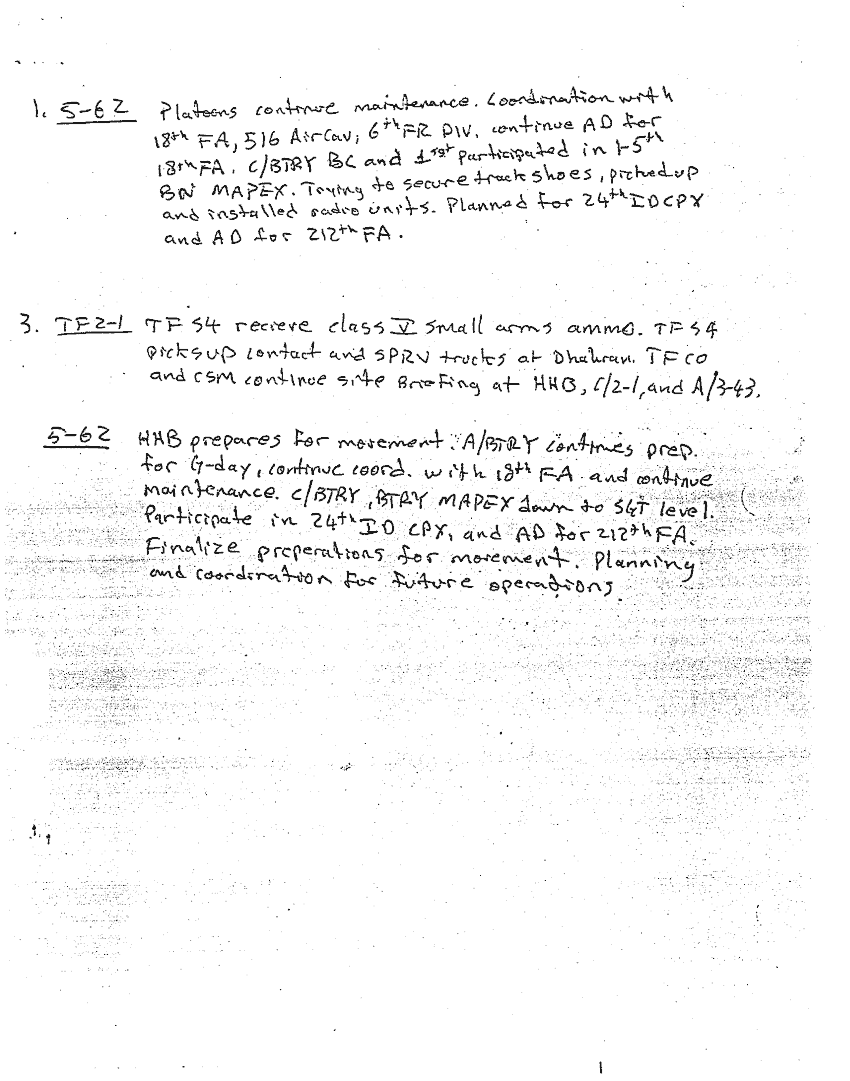 1. 5-62 Platoons continue maintenance. Coordination with
18th FA, 516 AirCav, 6th FR DIV. continue AD for
18th FA. C/BTRY BC and 1rst participated in 1-5th
BN MAPEX. Trying to secure track shoes, picked up
and installed radio units. Planned for 24th ID CPX
and AD for 212th FA.
3. TF2-1 TF S4 recieve class V small arms ammo. TF S4
picks up contact and SPRV trucks at Dhahran. TF CO
and CSM continue site Briefing at HHB, C/2-1, and A/3-43.
5-62 HHB prepares for movement. A/BTRY continues prep.
for G-day, continue coord. with 18th FA and continue
maintenance. C/BTRY, BTRY MAPEX down to SGT level.
Participate in 24th ID CPX, and AD for 212th FA.
Finalize preperations for movement. Planning
and coordination for future operations.
1